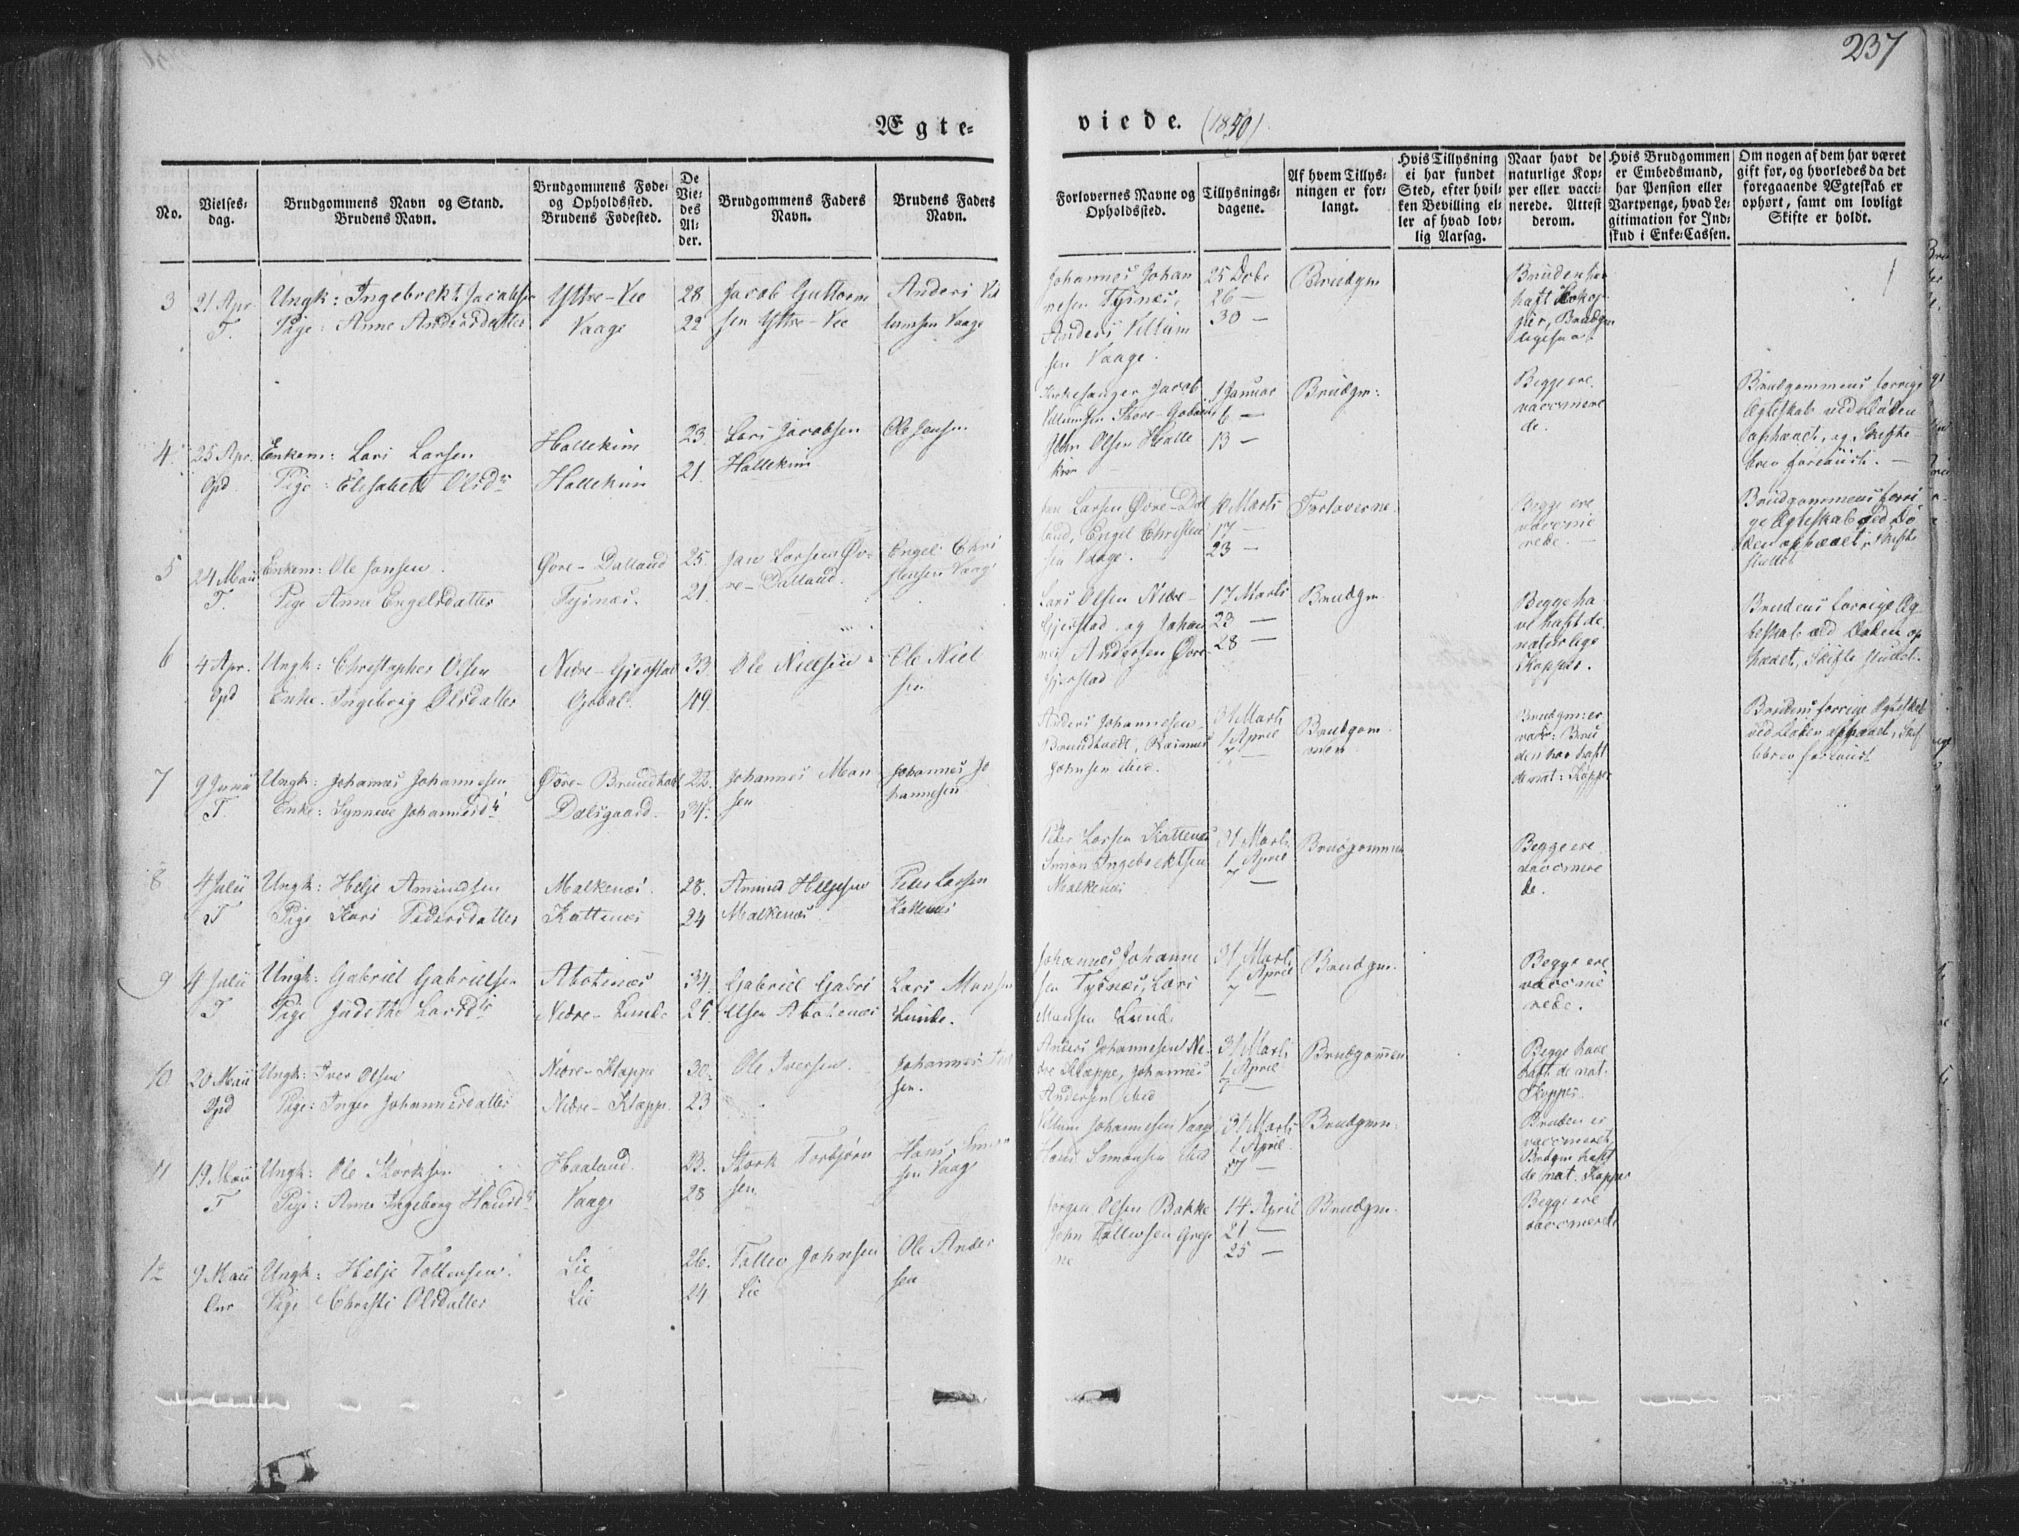 237
Ægte-
viede. (1850)
No.
Vielses-
dag.
Brudgommens Navn og Stand.
Brudens Navn.
Brudgommens Føde-
og Opholdssted.
Brudens Fødested.
De
Vie-
des
Al-
der.
Brudgommens Faders
Navn.
Brudens Faders
Navn.
Forlovernes Navne og
Opholdssted.
Tillysnings-
dagene.
Af hvem Tillys-
ningen er for-
langt.
Hvis Tillysning
ei har fundet
Sted, efter hvil-
ken Bevilling el-
ler af hvad lov-
lig Aarsag.
Naar havt de
naturlige Kop-
per eller vacci-
nerede. Attest
derom.
Hvis Brudgommen
er Embedsmand,
har Pension eller
Vartpenge, hvad Le-
gitimation for Ind-
skud i Enke-Cassen.
Om nogen af dem har været
gift for, og hvorledes da det
foregaaende Ægteskab er
ophørt, samt om lovligt
Skifte er holdt.
3
21 Apr
T.
Ungk: Ingebrekt Jacobsen
Pige: Anne Andersdatter
Yttre-Vee
Vaage
28
22
Jacob Guttorm
sen Yttre-Vee
Anders Vil
lumsen Vaage
Johannes Johan
nesen Tysnes,
Anders Villum
sen Vaage.
25 Debr
26 —
30 —
Brudgm
4
25 Apr.
Opd
Enkem: Lars Larsen
Pige: Elisabeth Olsdr
Hallekim
Hallekim
23.
21
Lars Jacobsen
Hallekim
Ole Jensen
Kirkesanger Jacob
Villumsen Store-Goben
Olsen Halle
kim
1 Januar
6 —
13 —
Brudgm:
Begge ere
vaccinere
de.
Brudgommens forrige
Ægteskab ved Døden
ophævet, og Skifte
brev foreviist. —
5
24 Maii
T.
Enkem: Ole Jansen.
Pige Anne Engelsdatter
Øvre-Dalland
Tysnes.
25.
21.
Jan Larsen Øv-
re-Dalland.
Engel Chri
stensen Vaage
Jan Larsen Øvre-Dal
land, Engel Christen
sen Vaage.
10 Marts
17 —
23 —
Forloverne
Begge ere
vaccine
rede. —
Brudgommens forri
ge Ægteskab ved Dø
den ophævet, Skifte
sluttet
6
4 Apr.
Opd
Ungk: Christopher Olsen
Enke. Ingeborg Olsdatter
Nedre-Gjerstad
Gobal.
33.
49
Ole Nielsen.
Ole Niel
sen
Lars Olsen Nedre-
Gjerstad og Johan
nes Andersen Øvre
Gjerstad
17 Marts
23 —
28 —
Brudgm.
Begge ha
ve haft de
naturlige
Kopper.
Brudens forrige Æg
teskab ved Døden op
hævet, Skifte sluttet.
7
9 Junii
T.
Ungk: Johannes Johannesen
Enke: Synneve Johannesdr
Øvre-Brudtvedt
Dalsgaard
22.
34.
Johannes Mon
sen
Johannes Jo
hannesen
Anders Johannesen
Brudtvedt, Rasmus
Johnsen ibid.
31 Marts
1 April
7 —
Brudgom
men
Brudgm: er
vacc: Bru
den har haft
de nat: Kopper
Brudens forrige Ægteskab
ved Døden ophævet, Skif
tebrev foreviist
8
4 Julii
T
Ungk: Helje Amundsen
Pige Kari Pedersdatter
Malkenes.
Kattenes
28.
24
Amund Heljesen
Malkenes
Peder Larsen
Kattenes
Peter Larsen Kattenes
Simon Ingebrektsen
Malkenes
31 Marts
1 April
7 —
Brudgommen
Begge ere
vaccinere
de.
9
4 Julii
T
Ungk: Gabriel Gabrielsen
Pige Judithe Larsdr
Abotenes
Nedre-Lunde
34.
25.
Gabriel Gabri
elsen Abotenes
Lars Monsen
Lunde.
Johannes Johanne
sen Tysnes, Lars
Monsen Lund
31 Marts
1 April
7 —
Brudgm.
Begge ere
vaccine
rede.
10
20 Maii
Opd
Ungk: Iver Olsen
Pige: Inger Johannesdatter
Nedre-Kleppe
Nedre-Kleppe
30.
23
Ole Iversen.
Johannes
sen.
Anders Johannesen Ne-
dre Kleppe, Johannes
Andersen ibid
31 Marts
1 April
7 —
Brudgommen
Begge have
haft de nat.
Kopper.
11
19 Maii
T
Ungk: Ole Storksen
Pige: Anne Ingeborg Hansdr
Haaland.
Vaage
23.
28
Stork Torbjørn
sen
Hans Simon
sen Vaage
Villum Johannesen Vaage
Hans Simonsen ibid
31 Marts
1 April.
7 —
Brudgm:
Bruden er
vaccineret,
Brudgm haft
de nat. Kopper
12
9 Maii
Ungk: Helje Tollevsen.
Pige Christi Olsdatter
Lie
Lie
26.
24
Tollev Johnsen
Lie
Ole Ander
sen
Jørgen Olsen Bakke
John Tollevsen
14 April
21 —
25 —
Brudgm.
Begge ere
vaccinerede